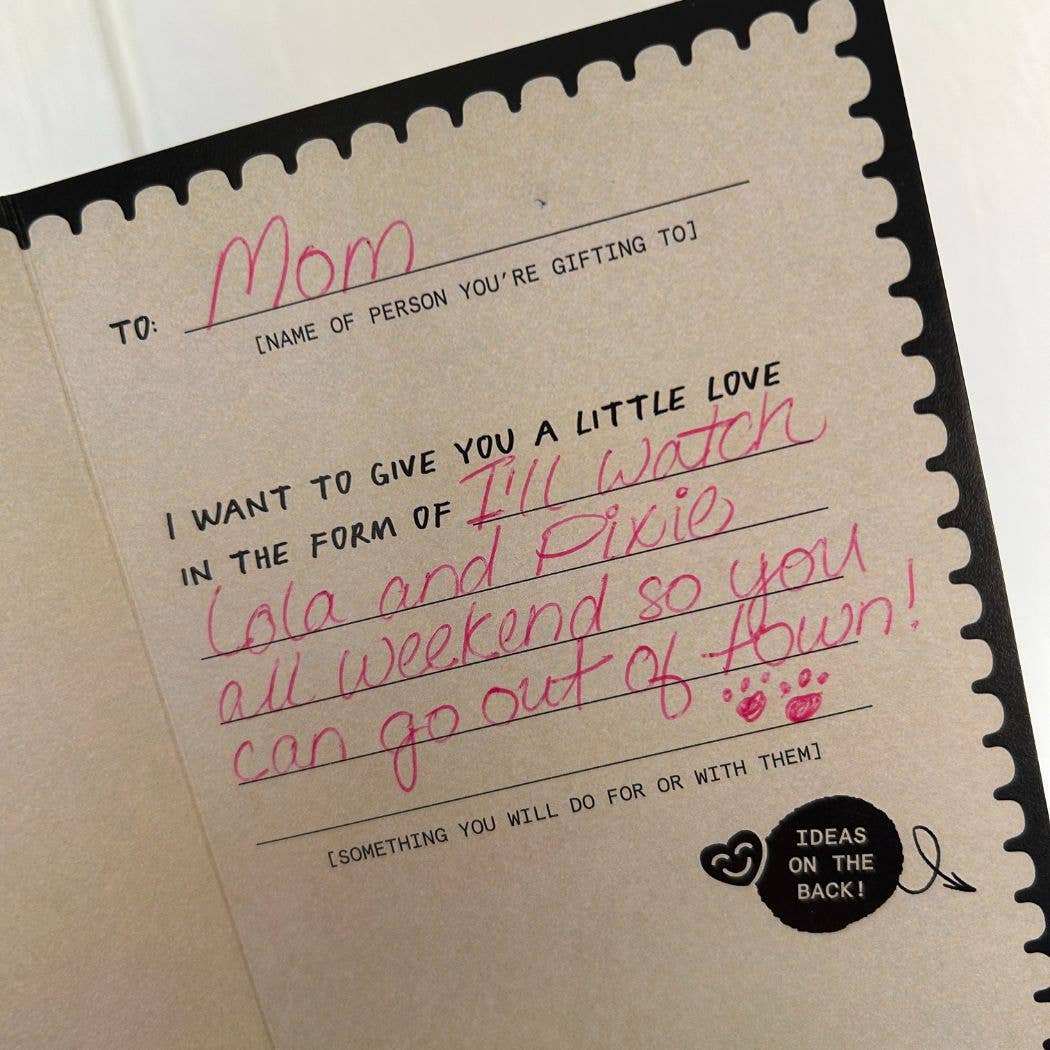 TO: Mom
[NAME OF PERSON YOU'RE GIFTING TO]
I WANT TO GIVE YOU A LITTLE LOVE
IN THE FORM OF I'll watch
Lola and Pixie
all weekend so you
can go out of town!
[SOMETHING YOU WILL DO FOR OR WITH THEM]
IDEAS
ON THE
BACK!